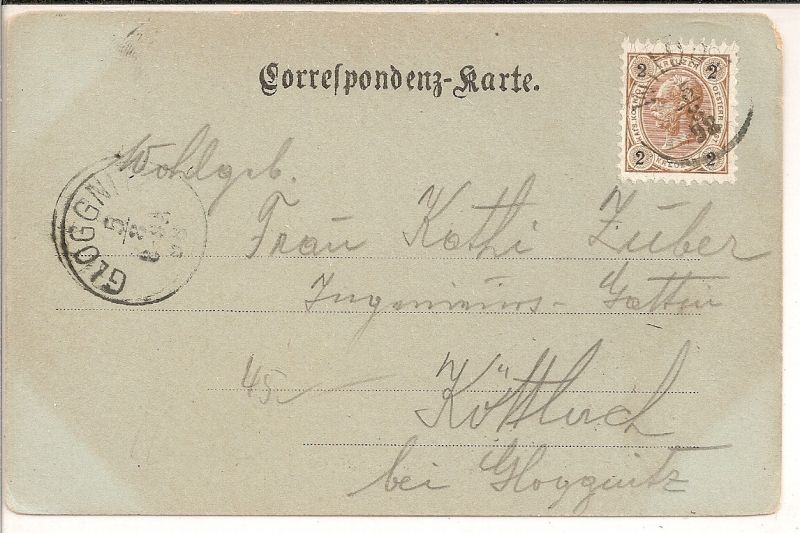 Correspondenz-Karte.
2 2
2 2
KREUZER
GLOGGNI
5/8
Wohlgeb.
Frau Kathi Zuber
Ingenieurs-Gattin
45
Köttlach
bei Gloggnitz